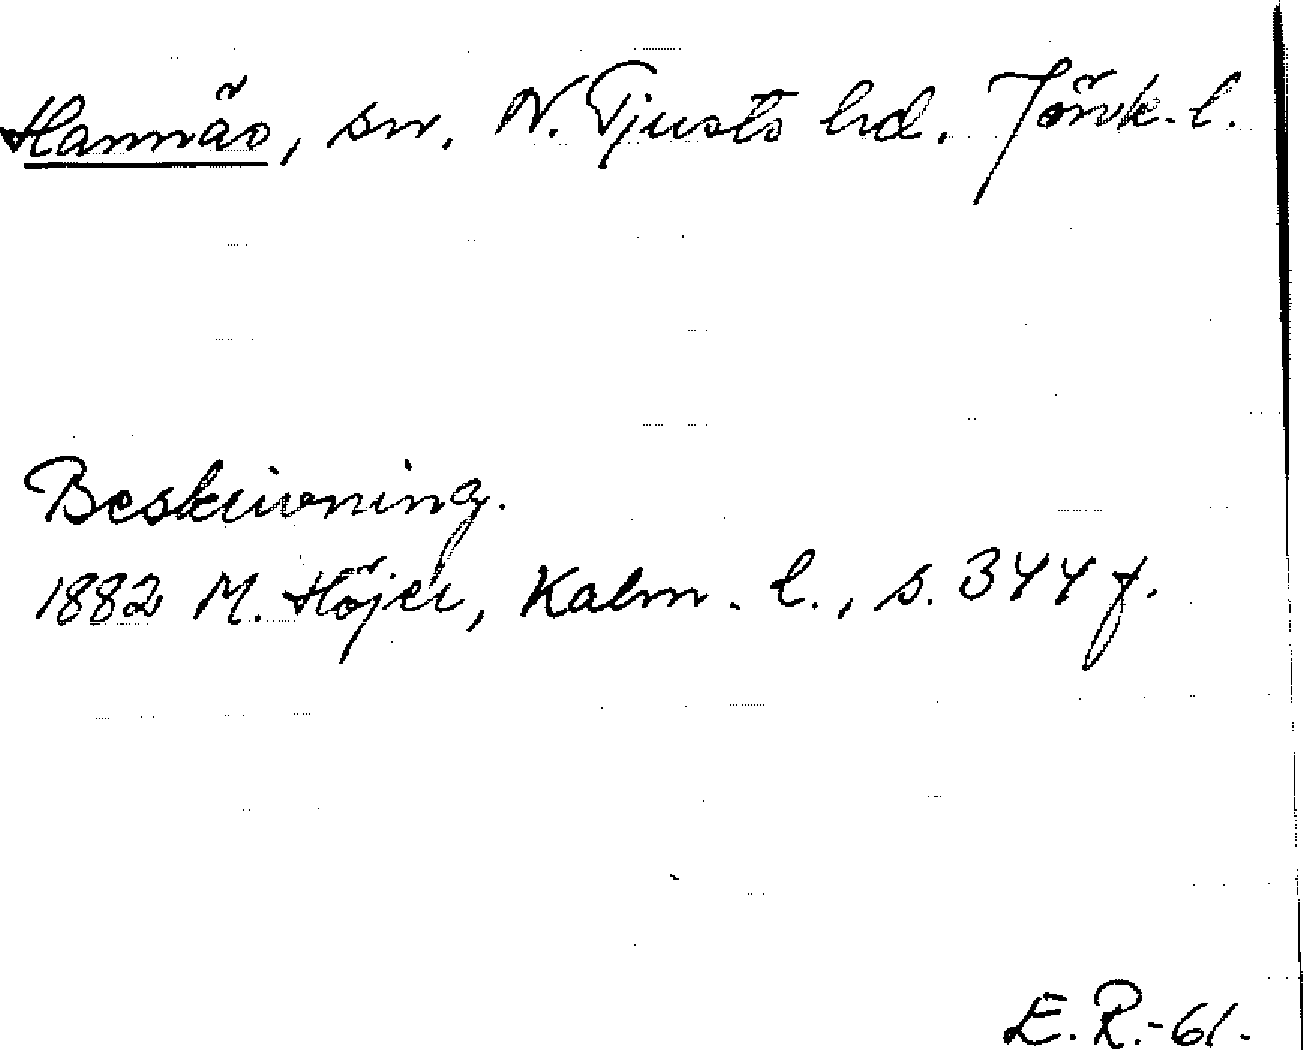 Hannäs, sn. N. Tjusts hd. Jönk. l.
Beskrivning.
1882 M. Höjer, Kalm. l., s. 344 f.
E. R.-61.